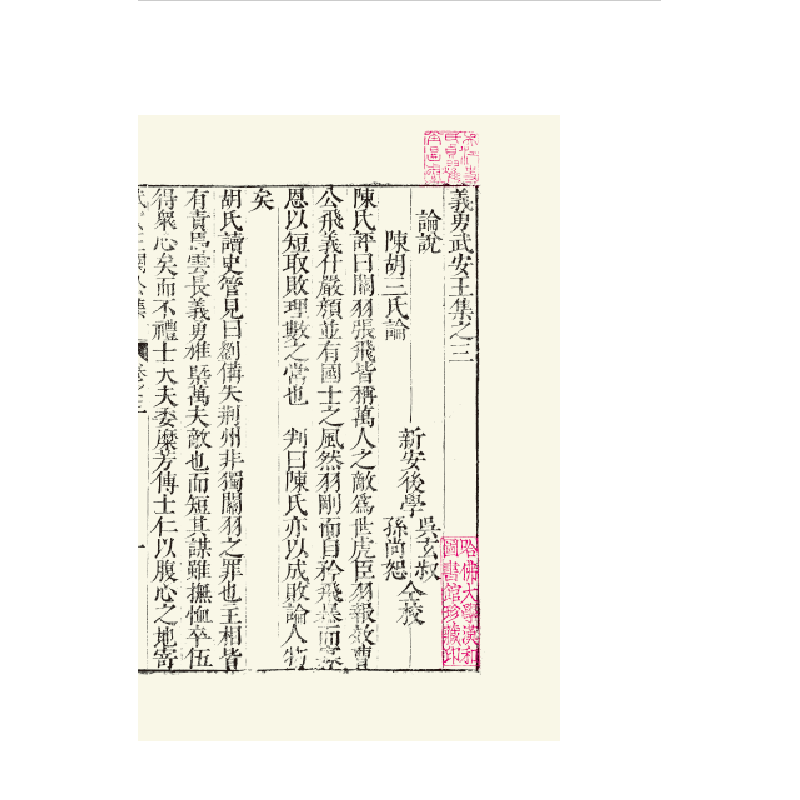 義勇武安王集之三
新安後學 吳玄叔 孫尚恕 仝校
論說
陳胡三氏論
陳氏評曰關羽張飛皆稱萬人之敵爲世虎臣羽報效曹
公飛義什嚴顏並有國士之風然羽剛而自矜飛暴而寡
恩以短取敗理數之常也 判曰陳氏亦以成敗論人物
矣
胡氏讀史管見曰劉備失荆州非獨關羽之罪也王相皆
有責焉雲長義勇雄槩萬夫敵也而短其謀雖撫恤卒伍
得衆心矣而不禮士大夫委麋芳傅士仁以腹心之地寄
哈佛大學漢和
圖書館珍藏印